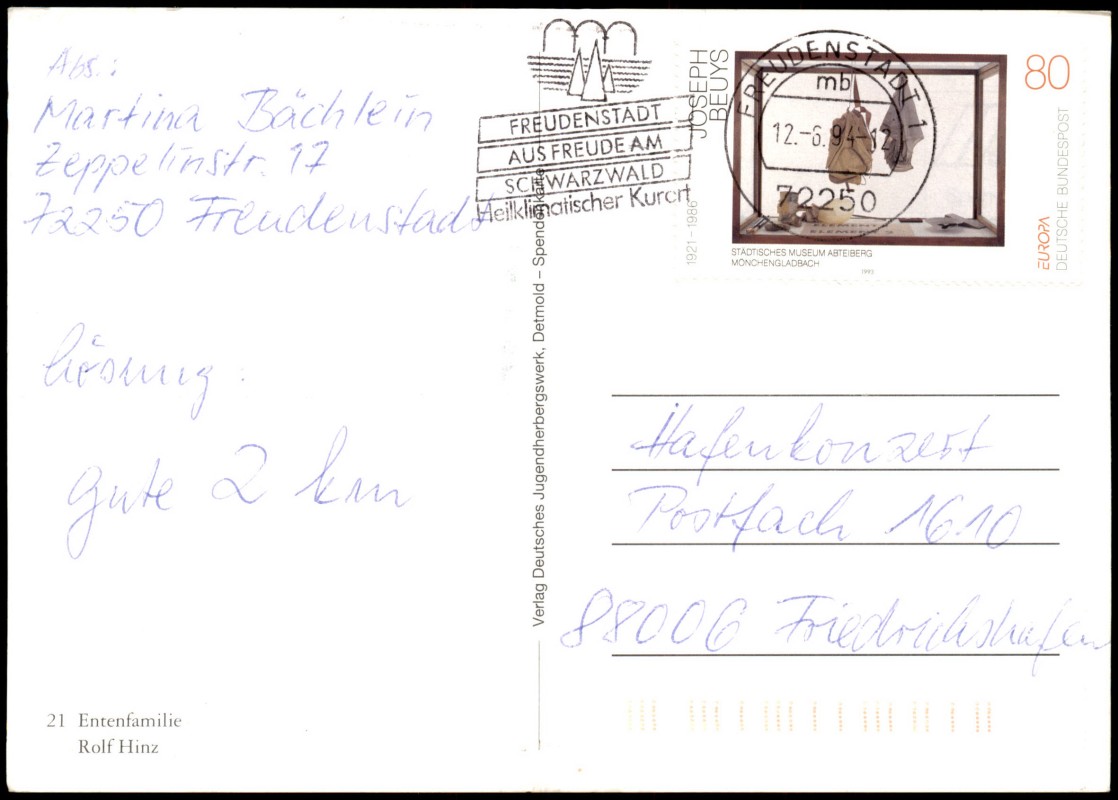 Abs.:
Martina Bächlein
Zeppelinstr. 17
72250 Freudenstadt
Lösung:
gute 2 km
21 Entenfamilie
Rolf Hinz
Verlag Deutsches Jugendherbergswerk, Detmold – Spendenkarte
FREUDENSTADT
AUS FREUDE AM
SCHWARZWALD
Heilklimatischer Kurort
JOSEPH
BEUYS
1921–1986
FREUDENSTADT 1
mb
12.-6.94-12
72250
ELEMENT 1
ELEMENT 2
STÄDTISCHES MUSEUM ABTEIBERG
MÖNCHENGLADBACH
1993
80
EUROPA
DEUTSCHE BUNDESPOST
Hafenkonzert
Postfach 1610
88006 Friedrichshafen